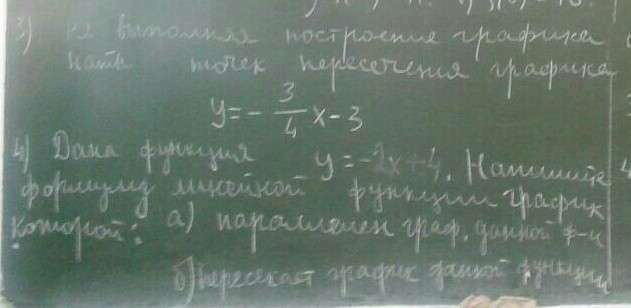 3) Не выполняя построение графика
точек пересечения графика
y=-3/4 x-3
4) Дана функция y=-2x+4. Напишите
формулу линейной функции график
которой: а) параллелен граф. данной ф-и
б) пересекает график данной функции